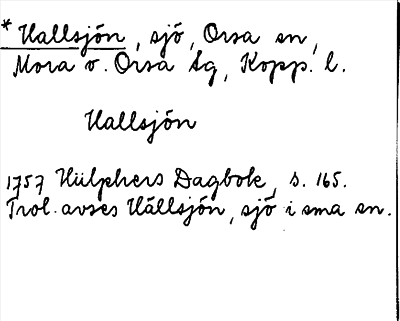 * Hallsjön, sjö, Orsa sn,
Mora o. Orsa tg, Kopp. l.
Hallsjön
1757 Hülphers Dagbok, s. 165.
Trol. avses Hällsjön, sjö i sma sn.